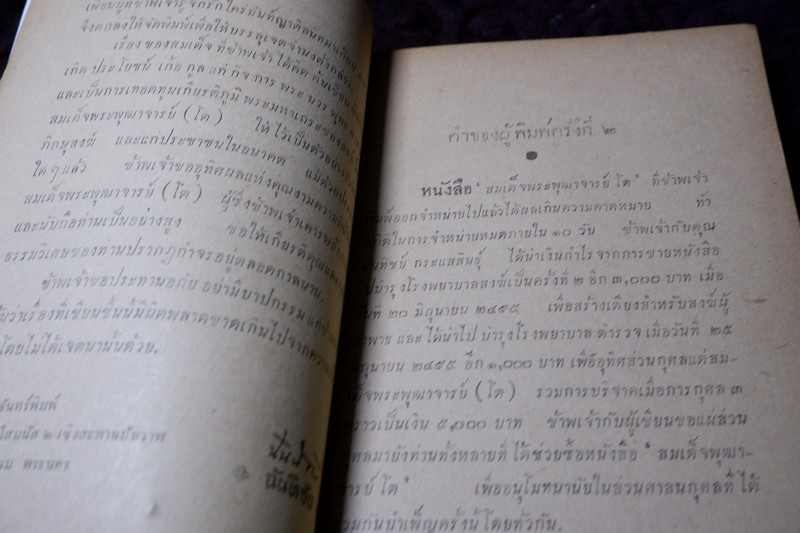 เพื่อนผู้ที่ข้าพเจ้ารู้จัก
จึงตกลงให้จัดพิมพ์เพื่อให้บรรลุเจตจำนงดังกล่าว
เรื่องของสมเด็จ ที่ข้าพเจ้า ได้คิด ค้นเขียน
เกิด ประ โยชน์ เกื้อ กูล แก่ กิจ การ พระ บวร พุทธ
และเป็นการเทอดทูนเกียรติภูมิ พระมหาเถระของ
สมเด็จพระพุฒาจารย์ (โต) ให้ไว้เป็นตัวอย่าง
ภิกษุสงฆ์ และแก่ประชาชนในอนาคต แม้ด้วย
ใดๆแล้ว ข้าพเจ้าขออุทิศผลแห่งคุณงามความดี
สมเด็จพระพุฒาจารย์ (โต) ผู้ซึ่งข้าพเจ้าเคารพ
และนับถือท่านเป็นอย่างสูง ขอให้เกียรติคุณและ
ธรรมวิเศษของท่านปรากฏกำจรอยู่ตลอดกาลนาน.
ข้าพเจ้าขอประทานอภัย อย่ามีบาปกรรม แก่ข้าพเจ้า
ว่าเรื่องที่เขียนขึ้นนี้มีผิดพลาดขาดเกินไปจากความ
โดยไม่ได้เจตนานั้นด้วย.
จันทร์พิมพ์
โสมนัส ๒ เชิงสะพาน
พระนคร
คำของผู้พิมพ์ครั้งที่ ๒
หนังสือ "สมเด็จพระพุฒาจารย์ โต" ที่ข้าพเจ้า
พิมพ์ออกจำหน่ายไปแล้วได้ผลเกินความคาดหมาย ทำ
สถิติในการจำหน่ายหมดภายใน ๑๐ วัน ข้าพเจ้ากับคุณ
ฉันทิชย์ กระแสสินธุ์ ได้นำเงินกำไรจากการขายหนังสือ
ไปบำรุงโรงพยาบาลสงฆ์เป็นครั้งที่ ๒ อีก ๓,๐๐๐ บาท เมื่อ
วันที่ ๒๐ มิถุนายน ๒๔๙๕ เพื่อสร้างเตียงสำหรับสงฆ์ผู้
อาพาธ และ ได้นำไป บำรุงโรงพยาบาล ตำรวจ เมื่อวันที่ ๒๕
มิถุนายน ๒๔๙๕ อีก ๑,๐๐๐ บาท เพื่ออุทิศส่วนกุศลแด่สม-
เด็จพระพุฒาจารย์ (โต) รวมการบริจาคเมื่อการกุศล ๓
คราวเป็นเงิน ๕,๐๐๐ บาท ข้าพเจ้ากับผู้เขียนขอแผ่ส่วน
กุศลมายังท่านทั้งหลายที่ ได้ช่วยซื้อหนังสือ "สมเด็จพุฒา-
จารย์ โต" เพื่ออนุโมทนานัยในส่วนศาลนกุศลที่ ได้
ร่วมกันบำเพ็ญครั้งนี้ โดยทั่วกัน.